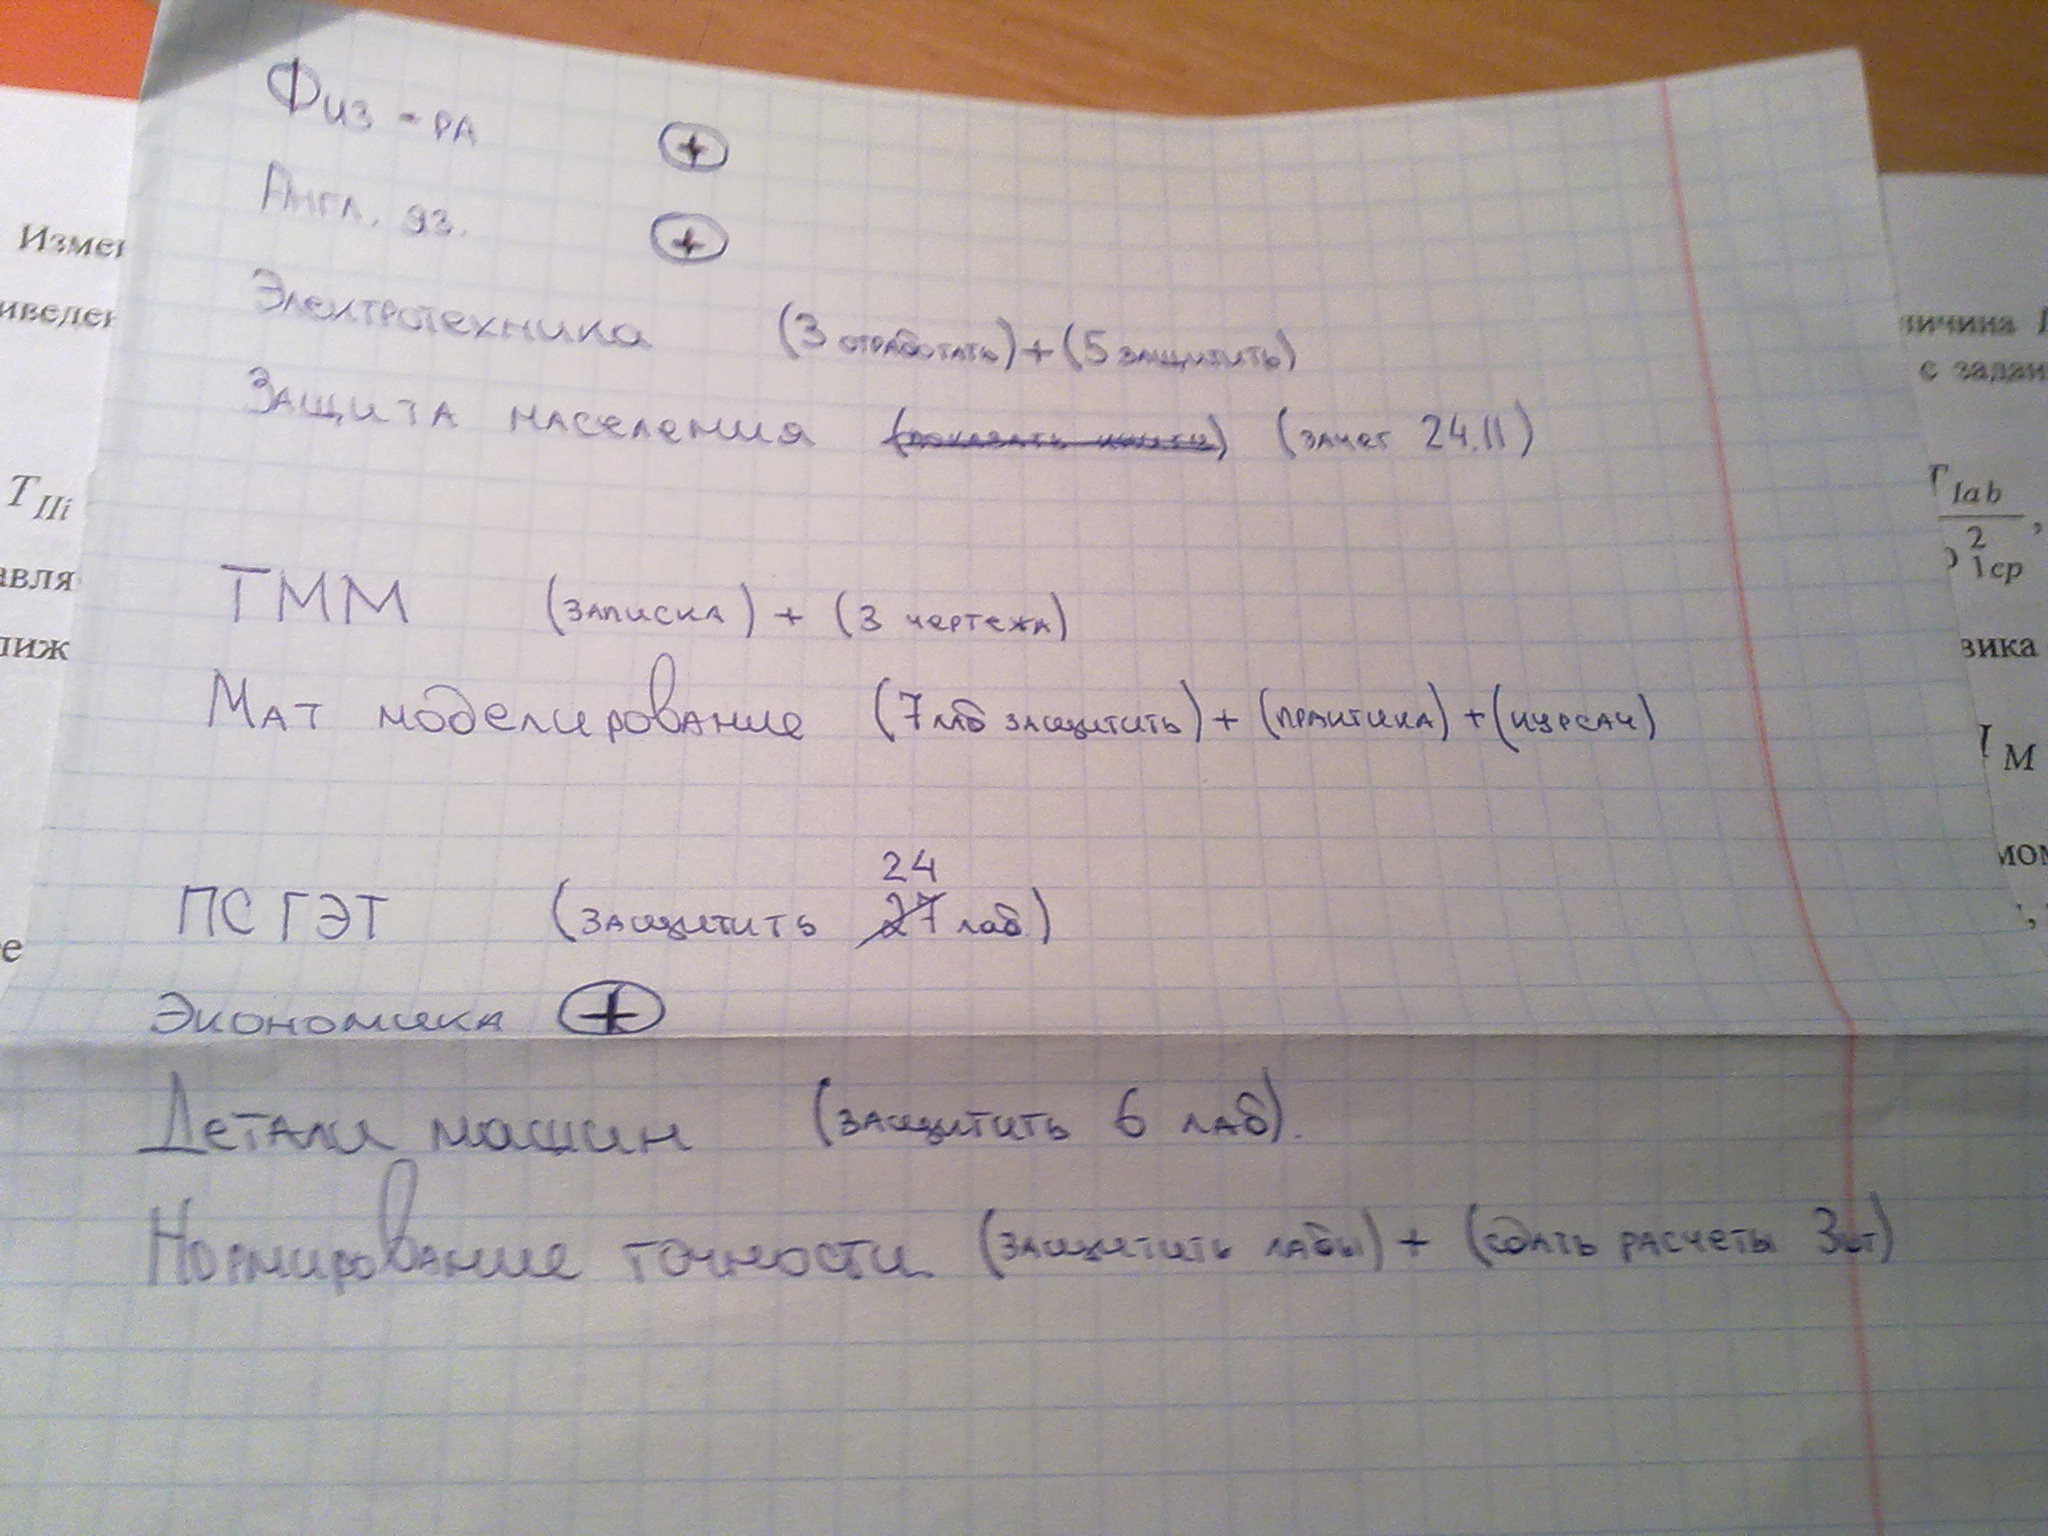 Физ-ра (+)
Англ. яз. (+)
Электротехника (3 отработать)+(5 защитить)
Защита населения (показать конспект) (зачет 24.11)
ТММ (записка) + (3 чертежа)
Мат моделирование (7 лаб защитить)+(практика)+(курсач)
24
ПСГЭТ (защитить 27 лаб)
Экономика (+)
Детали машин (защитить 6 лаб).
Нормирование точности (защитить лабы) + (сдать расчеты 3шт)
Измен
иведен
T IIi
авля
лиж
е
личина
с задан
T Iab
2
1ср
зика
M
мом